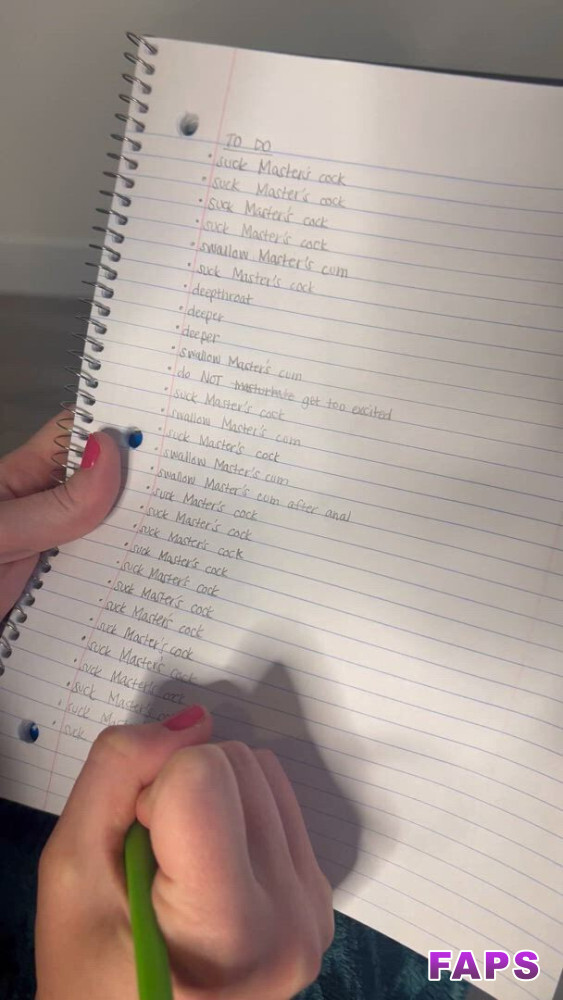 TO DO
• suck Master's cock
• suck Master's cock
• suck Master's cock
• suck Master's cock
• swallow Master's cum
• suck Master's cock
• deepthroat
• deeper
• deeper
• swallow Master's cum
• do NOT masturbate get too excited
• suck Master's cock
• swallow Master's cum
• suck Master's cock
• swallow Master's cum
• swallow Master's cum after anal
• suck Master's cock
• suck Master's cock
• suck Master's cock
• suck Master's cock
• suck Master's cock
• suck Master's cock
• suck Master's cock
• suck Master's cock
• suck Master's cock
• suck Master's cock
• suck Master's
• suck
• suck
FAPS